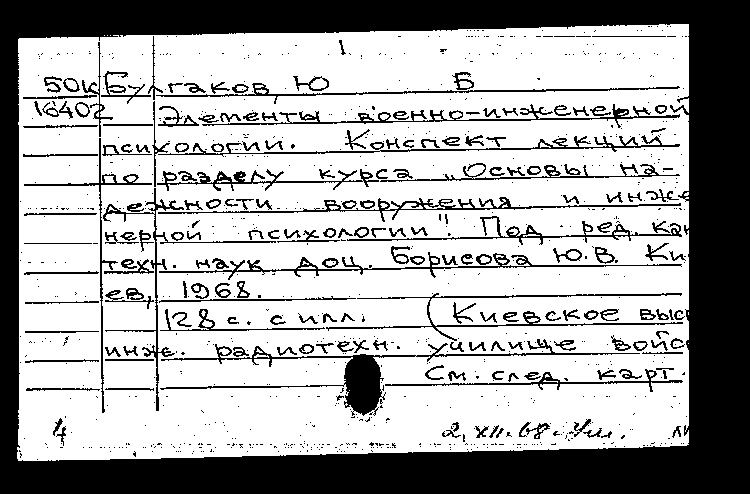 1
50к Булгаков, Ю Б
16402 Элементы военно-инженерной
психологии. Конспект лекций
по разделу курса „Основы на-
дежности вооружения и инже
нерной психологии". Под ред. кан
техн. наук доц. Борисова Ю.В. Ки-
ев, 1968.
128 с. с илл. (Киевское высш
инж. радиотехн. училище войск
См. след. карт.
4 2.XII.68.